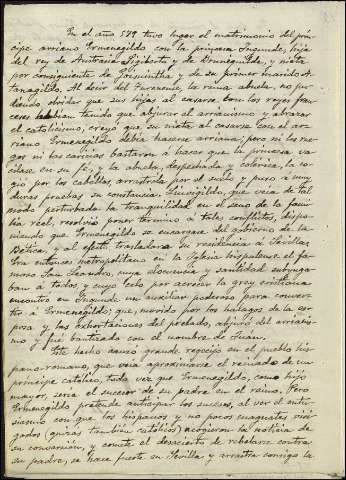 En el año 579 tuvo lugar el matrimonio del prín-
cipe arriano Ermenegildo con la princesa Ingunde, hija
del rey de Austrasia Sigiberto y de Brunequilda, y nieta
por consiguiente de Gosuintha y de su primer marido A-
tanagildo. Al decir del Turonense, la reina abuela, no pu-
diendo olvidar que sus hijas al casarse con los reyes fran-
ceses habían tenido que abjurar el arrianismo y abrazar
el catolicismo, creyó que su nieta al casarse con el ar-
riano Ermenegildo debía hacerse arriana; pero ni los rue-
gos ni las caricias bastaron á hacer que la princesa va-
cilase en su fe, y la abuela, despechada y colérica, la co-
gió por los cabellos, arrastrola por el suelo y puso á muy
duras pruebas su constancia. Leovigildo, que veía de tal
modo perturbada la tranquilidad en el seno de la fami-
lia real, resolvió poner término á tales conflictos, dispo-
niendo que Ermenegildo se encargase del gobierno de la
Bética, y al efecto trasladara su residencia á Sevilla.
Era entonces metropolitano en la Iglesia hispalense el fa-
moso San Leandro, cuya elocuencia y santidad subyuga-
ban á todos, y cuyo celo por acrecer la grey cristiana
encontró en Ingunde un auxiliar poderoso para conver-
tir á Ermenegildo; que, movido por los halagos de la es-
posa y las exhortaciones del prelado, abjuró del arrianis-
mo y fué bautizado con el nombre de Juan.
Este hecho causó grande regocijo en el pueblo his-
pano-romano, que veía aproximarse el reinado de un
príncipe católico, toda vez que Ermenegildo, como hijo
mayor, sería el sucesor de su padre en el reino. Pero
Ermenegildo pretende anticipar los sucesos, al ver el entu-
siasmo con que los hispanos y no pocos magnates visi-
godos (quizás también católicos) acogieron la noticia de
su conversión, y comete el desacierto de rebelarse contra
su padre, se hace fuerte en Sevilla y arrastra consigo la